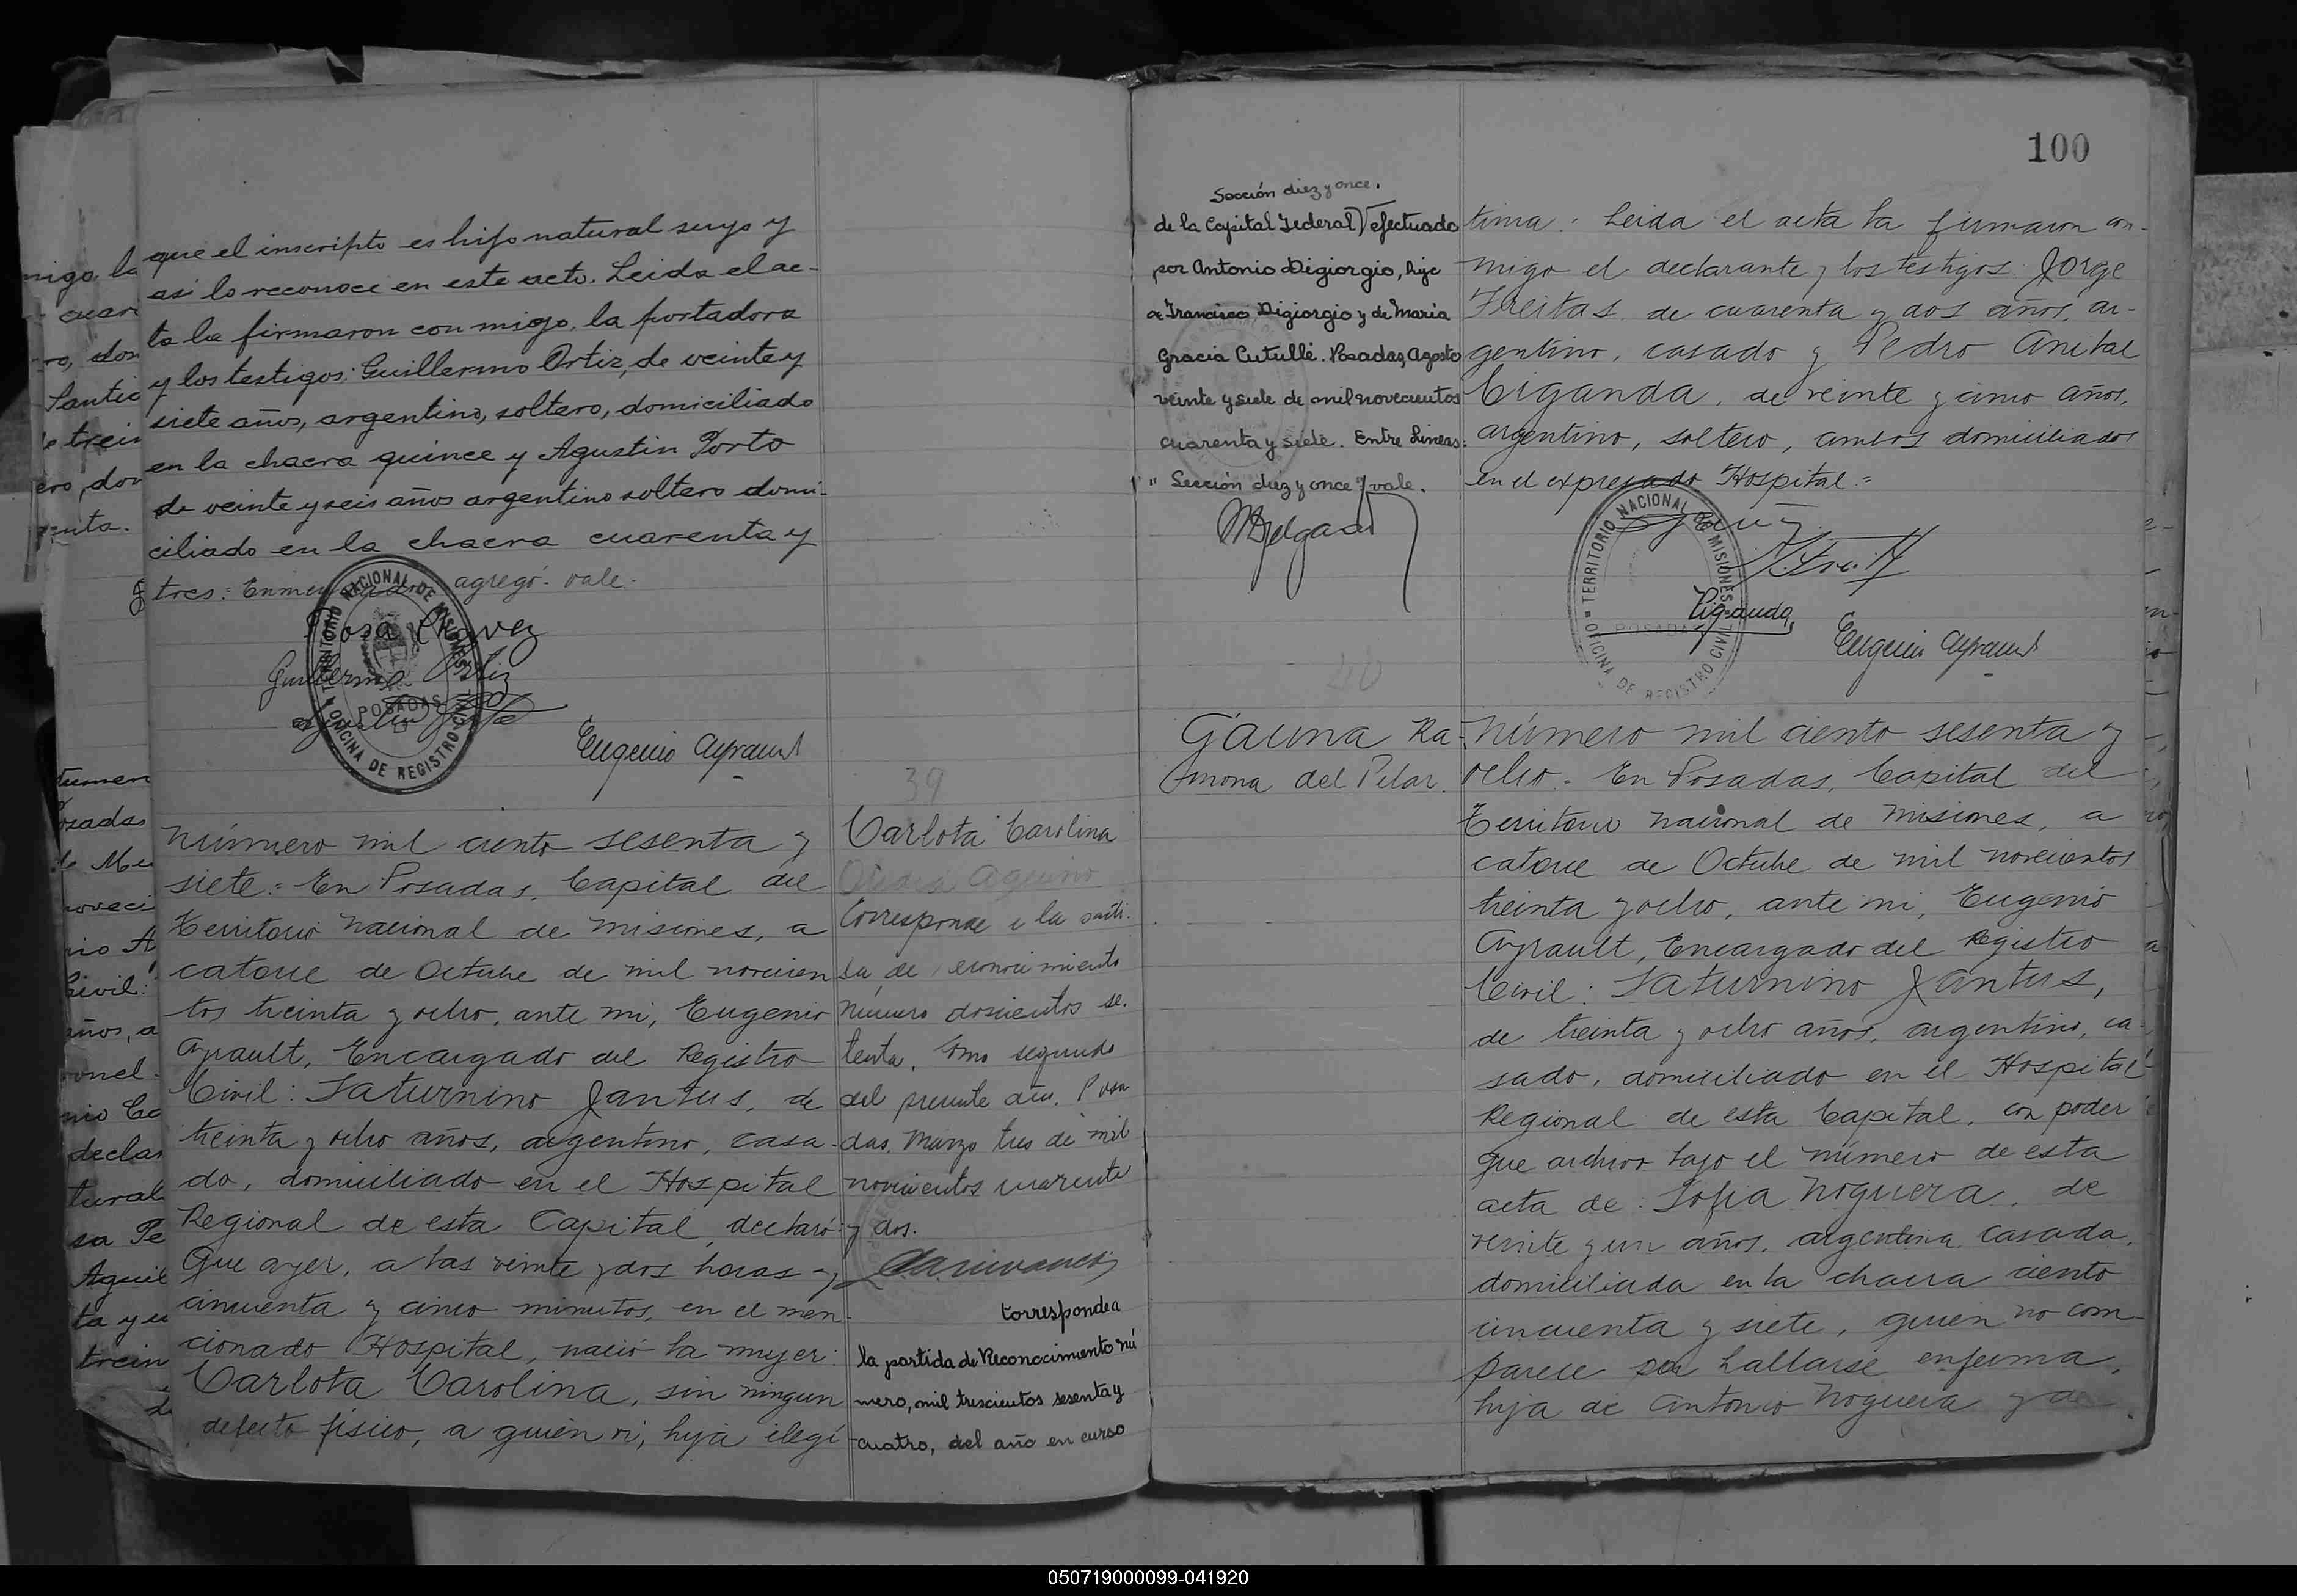 que el inscripto es hijo natural suyo y
asi lo reconoce en este acto. Leida el ac-
ta la firmaron conmigo, la portadora
y los testigos: Guillermo Ortiz, de veinte y
siete años, argentino, soltero, domiciliado
en la chacra quince y Agustin Porto
de veinte y seis años argentino soltero domi-
ciliado en la chacra cuarenta y
tres: Enmendado: agregó- vale.
Rosa Chavez
Guillermo Ortiz
Agustin Porto
TERRITORIO NACIONAL DE MISIONES
POSADAS
OFICINA DE REGISTRO CIVIL
Eugenio Ayrault
39
Número mil ciento sesenta y
siete.= En Posadas, Capital del
Territorio Nacional de Misiones, a
catorce de Octubre de mil novecien
tos treinta y ocho, ante mi, Eugenio
Ayrault, Encargado del Registro
Civil: Saturnino Jantus, de
treinta y ocho años, argentino, casa-
do, domiciliado en el Hospital
Regional de esta Capital, declaró:
Que ayer, a las veinte y dos horas y
cincuenta y cinco minutos, en el men-
cionado Hospital, nació la mujer:
Carlota Carolina, sin ningun
defecto físico, a quien vi, hija ilegi-
Carlota Carolina
Aquino
Corresponde a la parti-
da de reconocimiento
número doscientos se-
tenta, Tomo segundo
del presente año. Posa
das, Marzo tres de mil
novecientos cuarenta
y dos.
Corresponde a
la partida de Reconocimiento nú
mero, mil trescientos sesenta y
cuatro, del año en curso
100
Sección diez y once.
de la Capital Federal) efectuado
por Antonio Digiorgio, hijo
de Francisco Digiorgio y de Maria
Gracia Cutullé. Posadas, Agosto
veinte y siete de mil novecientos
cuarenta y siete. Entre Lineas:
" Sección diez y once" vale.
MDelgado
tima.= Leida el acta la firmaron con-
migo el declarante y los testigos Jorge
Freitas de cuarenta y dos años, ar-
gentino, casado y Pedro Anibal
Ciganda, de veinte y cinco años,
argentino, soltero, ambos domiciliados
en el expresado Hospital.=
TERRITORIO NACIONAL DE MISIONES
POSADAS
OFICINA DE REGISTRO CIVIL
Ciganda
Eugenio Ayrault
40
Gauna Ra-
mona del Pilar.
Número mil ciento sesenta y
ocho.= En Posadas, Capital del
Territorio Nacional de Misiones, a
catorce de Octubre de mil novecientos
treinta y ocho, ante mi, Eugenio
Ayrault, Encargado del Registro
Civil: Saturnino Jantus,
de treinta y ocho años, argentino, ca-
sado, domiciliado en el Hospital
Regional de esta Capital, con poder
que archivo bajo el número de esta
acta de: Sofia Noguera, de
veinte y un años, argentina, casada,
domiciliada en la chacra ciento
cincuenta y siete, quien no com-
parece por hallarse enferma,
hija de Antonio Noguera y de
050719000099-041920